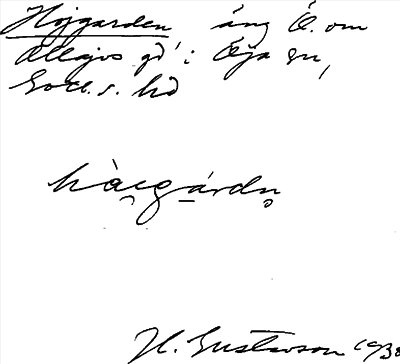 Höjgarden äng Ö. om
Allajvs gd i Öja sn,
Gotl. s. hd
hàcgárdn
H. Gustavson 193